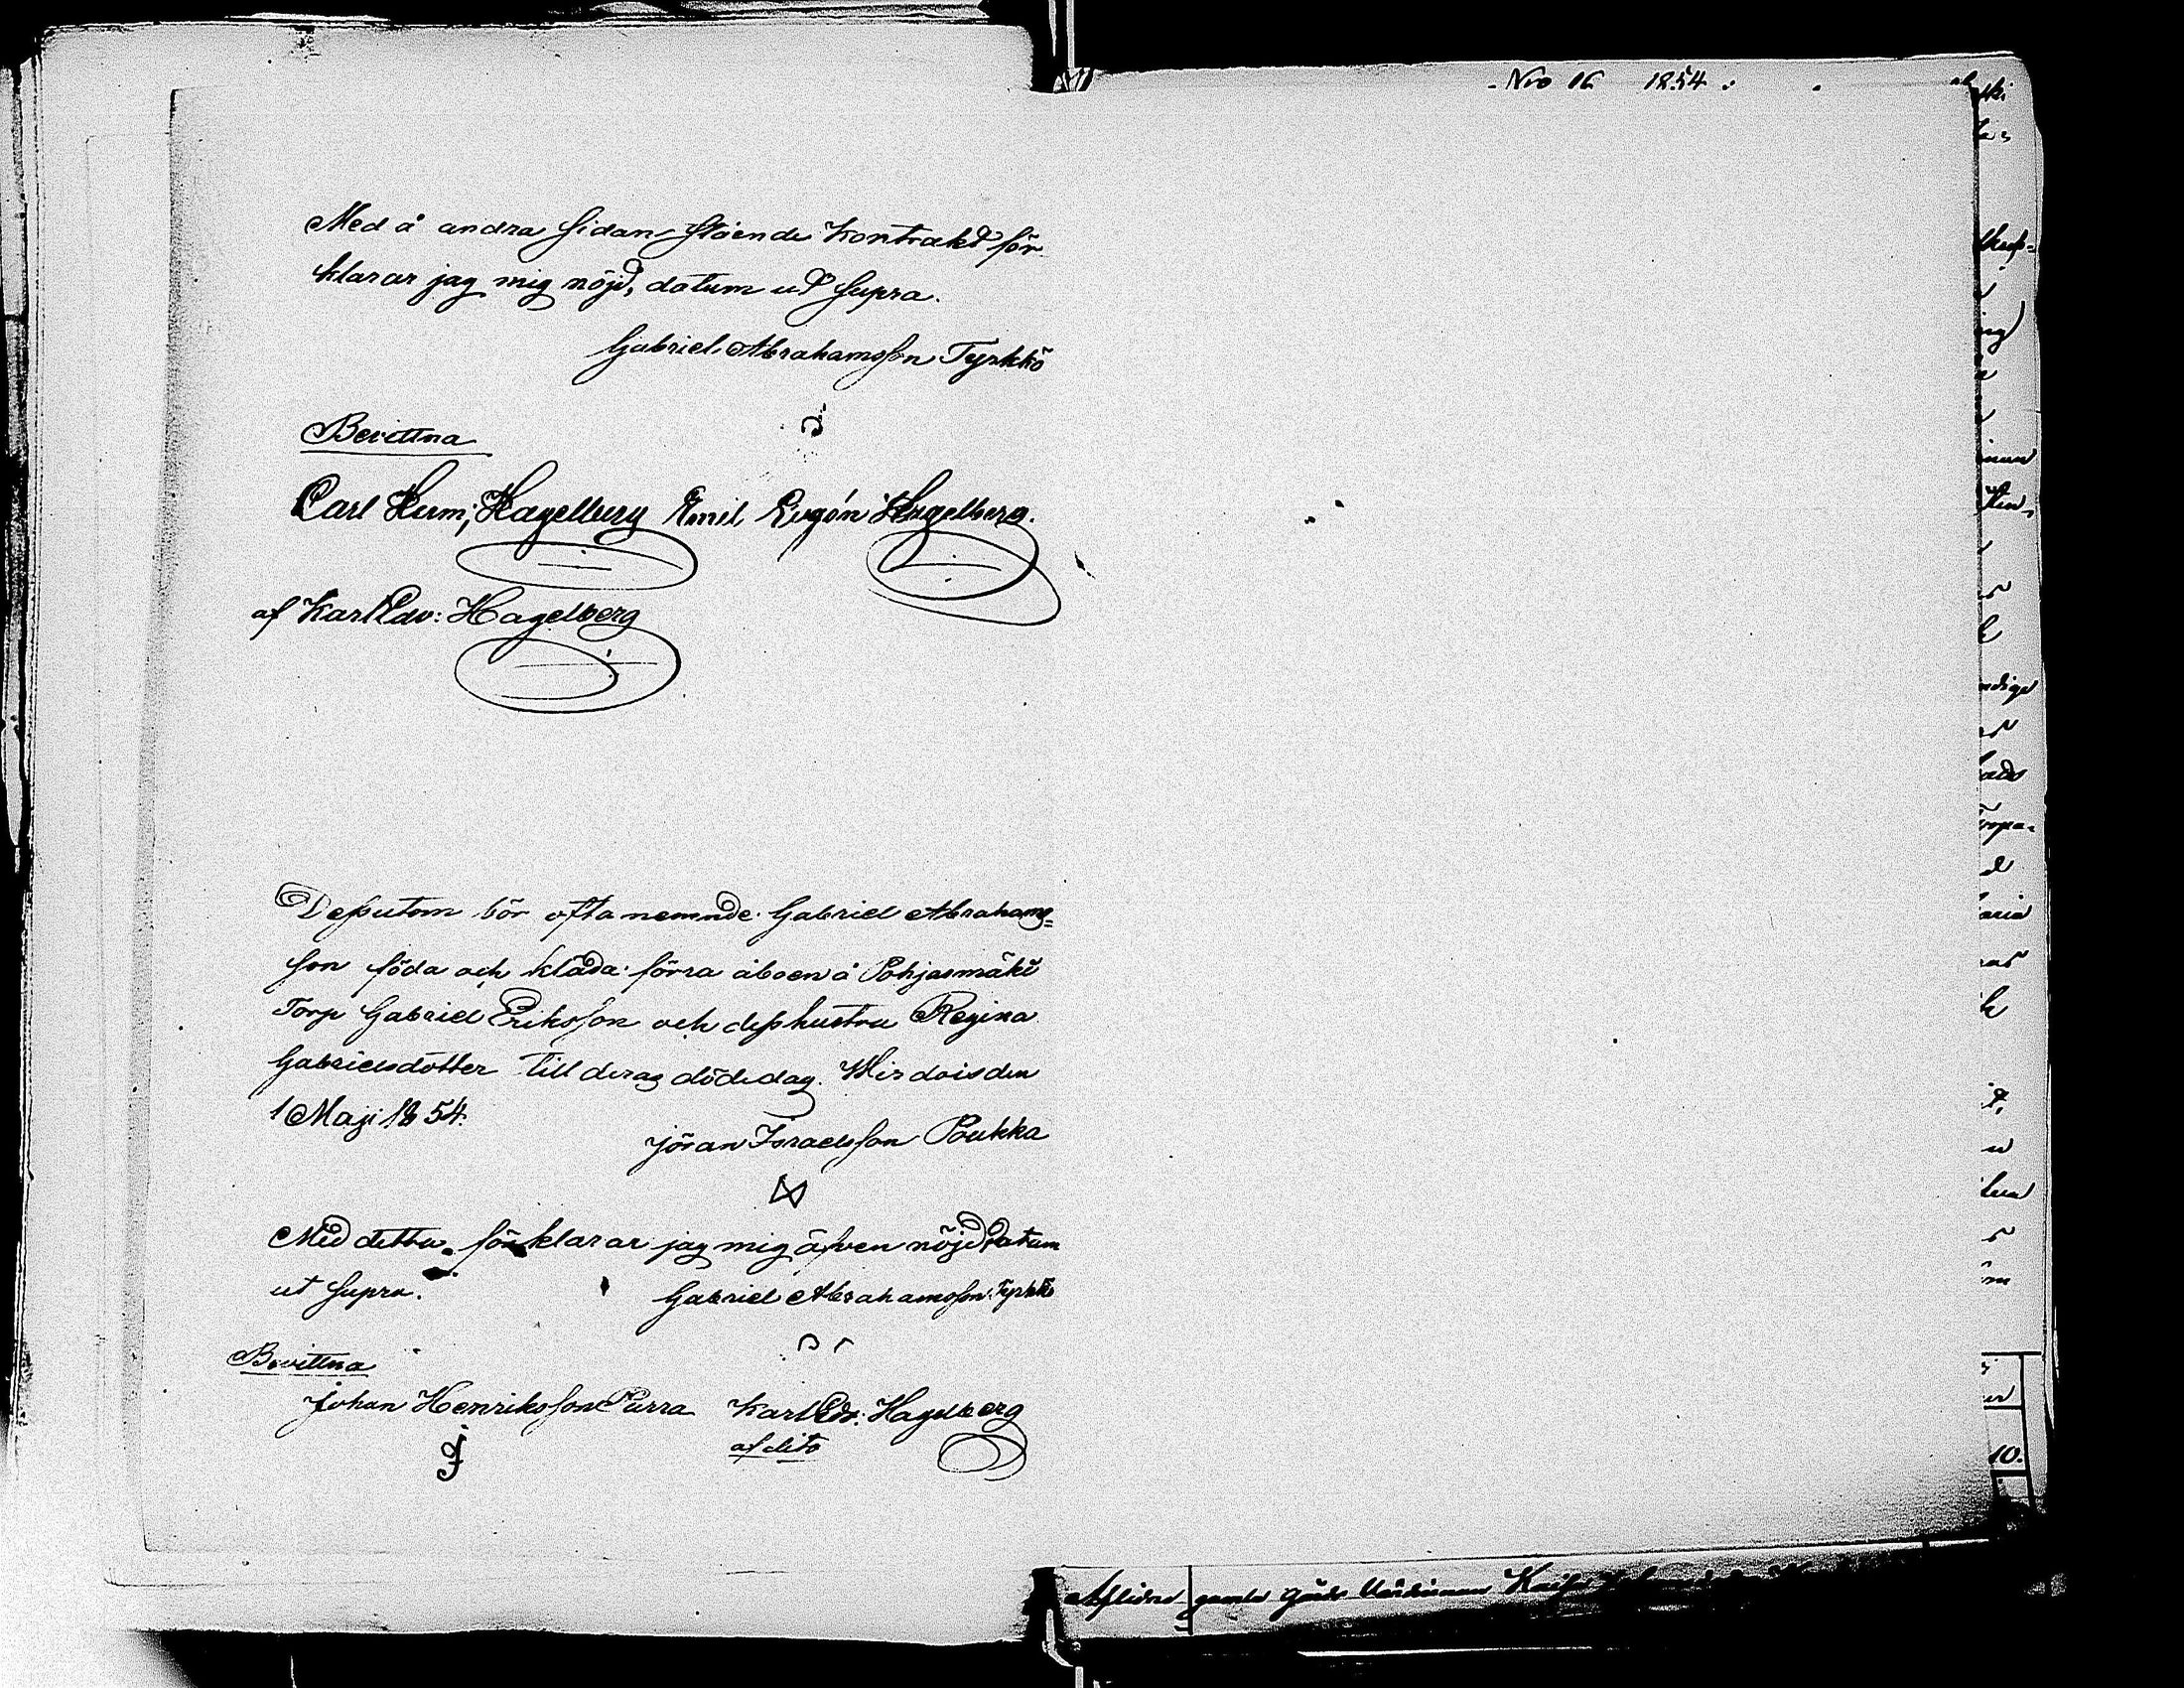 Med å andra sidan stående Kontrakt för-
klarar jag mig nöjd, datum ut supra.
Gabriel Abrahamsson Tyrkkö
Bevittna
Carl Herm; Hagelberg Emil Eugén Hagelberg.
af Karl Edv: Hagelberg
Dessutom bör ofta nemnde Gabriel Abrahams=
son föda och kläda förra åboen å Pohjasmäki
Torp Gabriel Eriksson och dess hustru Regina
Gabrielsdotter till deras dödedag. Wirdois den
1 Maji 1854.
Jöran Israelsson Poukka
Med detta förklarar jag mig äfven nöjd, Datum
ut supra. Gabriel Abrahamsson Tyrkkö
Bevittna
Johan Henriksson Purra Karl Edv: Hagelberg
af dito
Nro 16 1854.
Aflidne gamla Gårds Värdinnan
10.